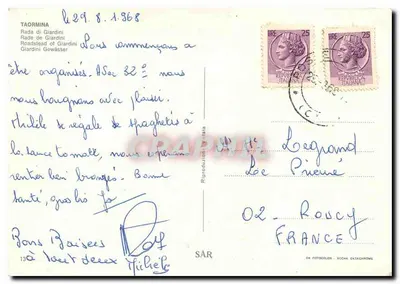 TAORMINA
Rada di Giardini
Rade de Giardini
Roadstead of Giardini
Giardini Gewässer
le 29.8.1968
Nous commençons à
être organisés. Avec 32° nous
nous baignons avec plaisir.
Michèle se régale de spaghettis à
la sauce tomate, nous
rentrer bien bronzés. Bonne
santé, gros
Bons Baisers
à tout deux
Michèle
SAR
M. Mme Legrand
Le Prieuré
02 - ROUCY
FRANCE
25
25
CRAPHIM